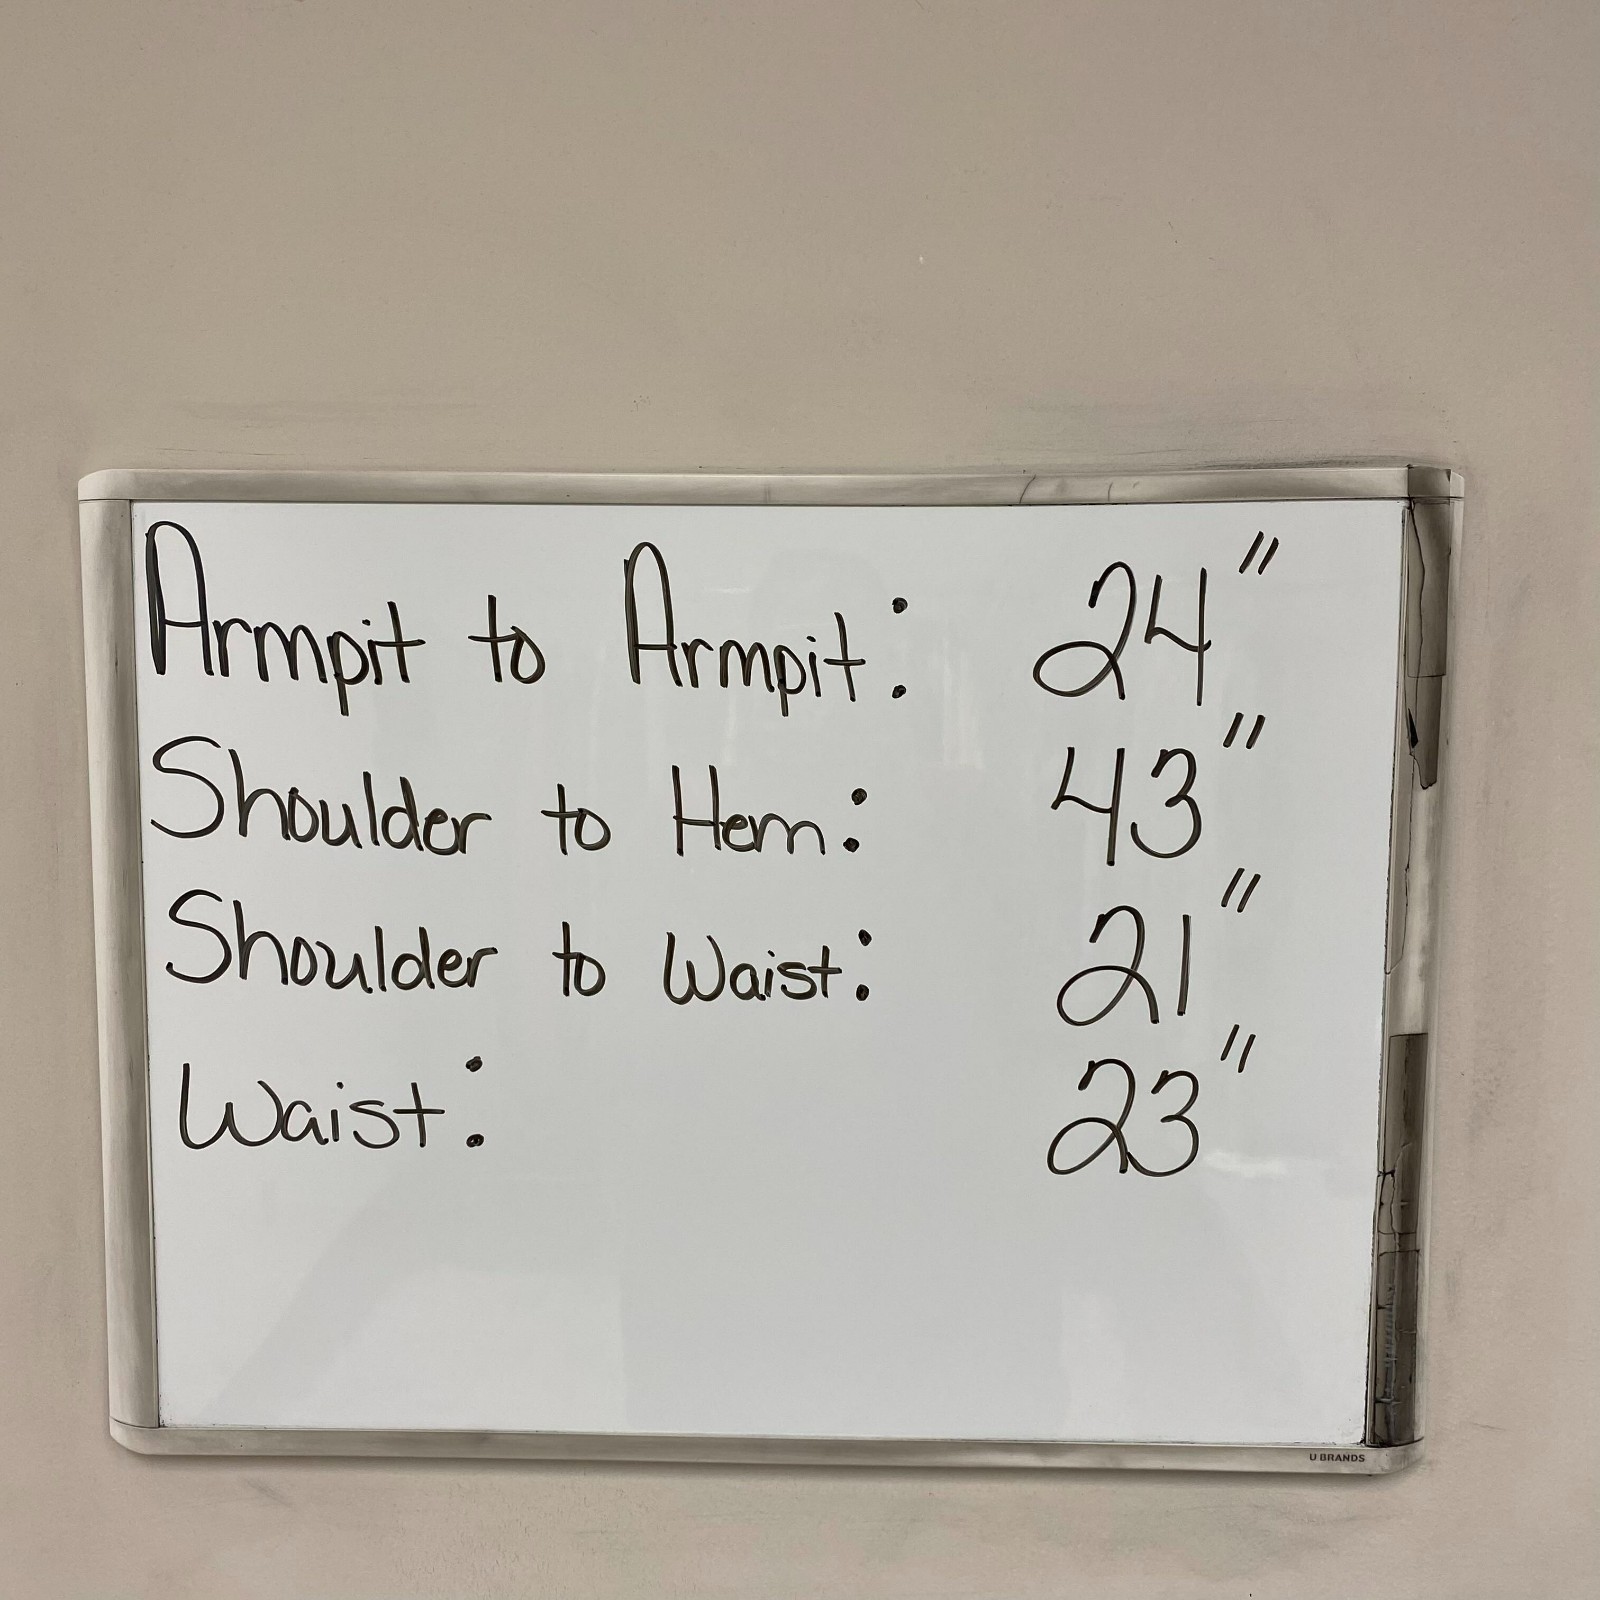 Armpit to Armpit: 24"
Shoulder to Hem: 43"
Shoulder to Waist: 21"
Waist: 23"
U BRANDS